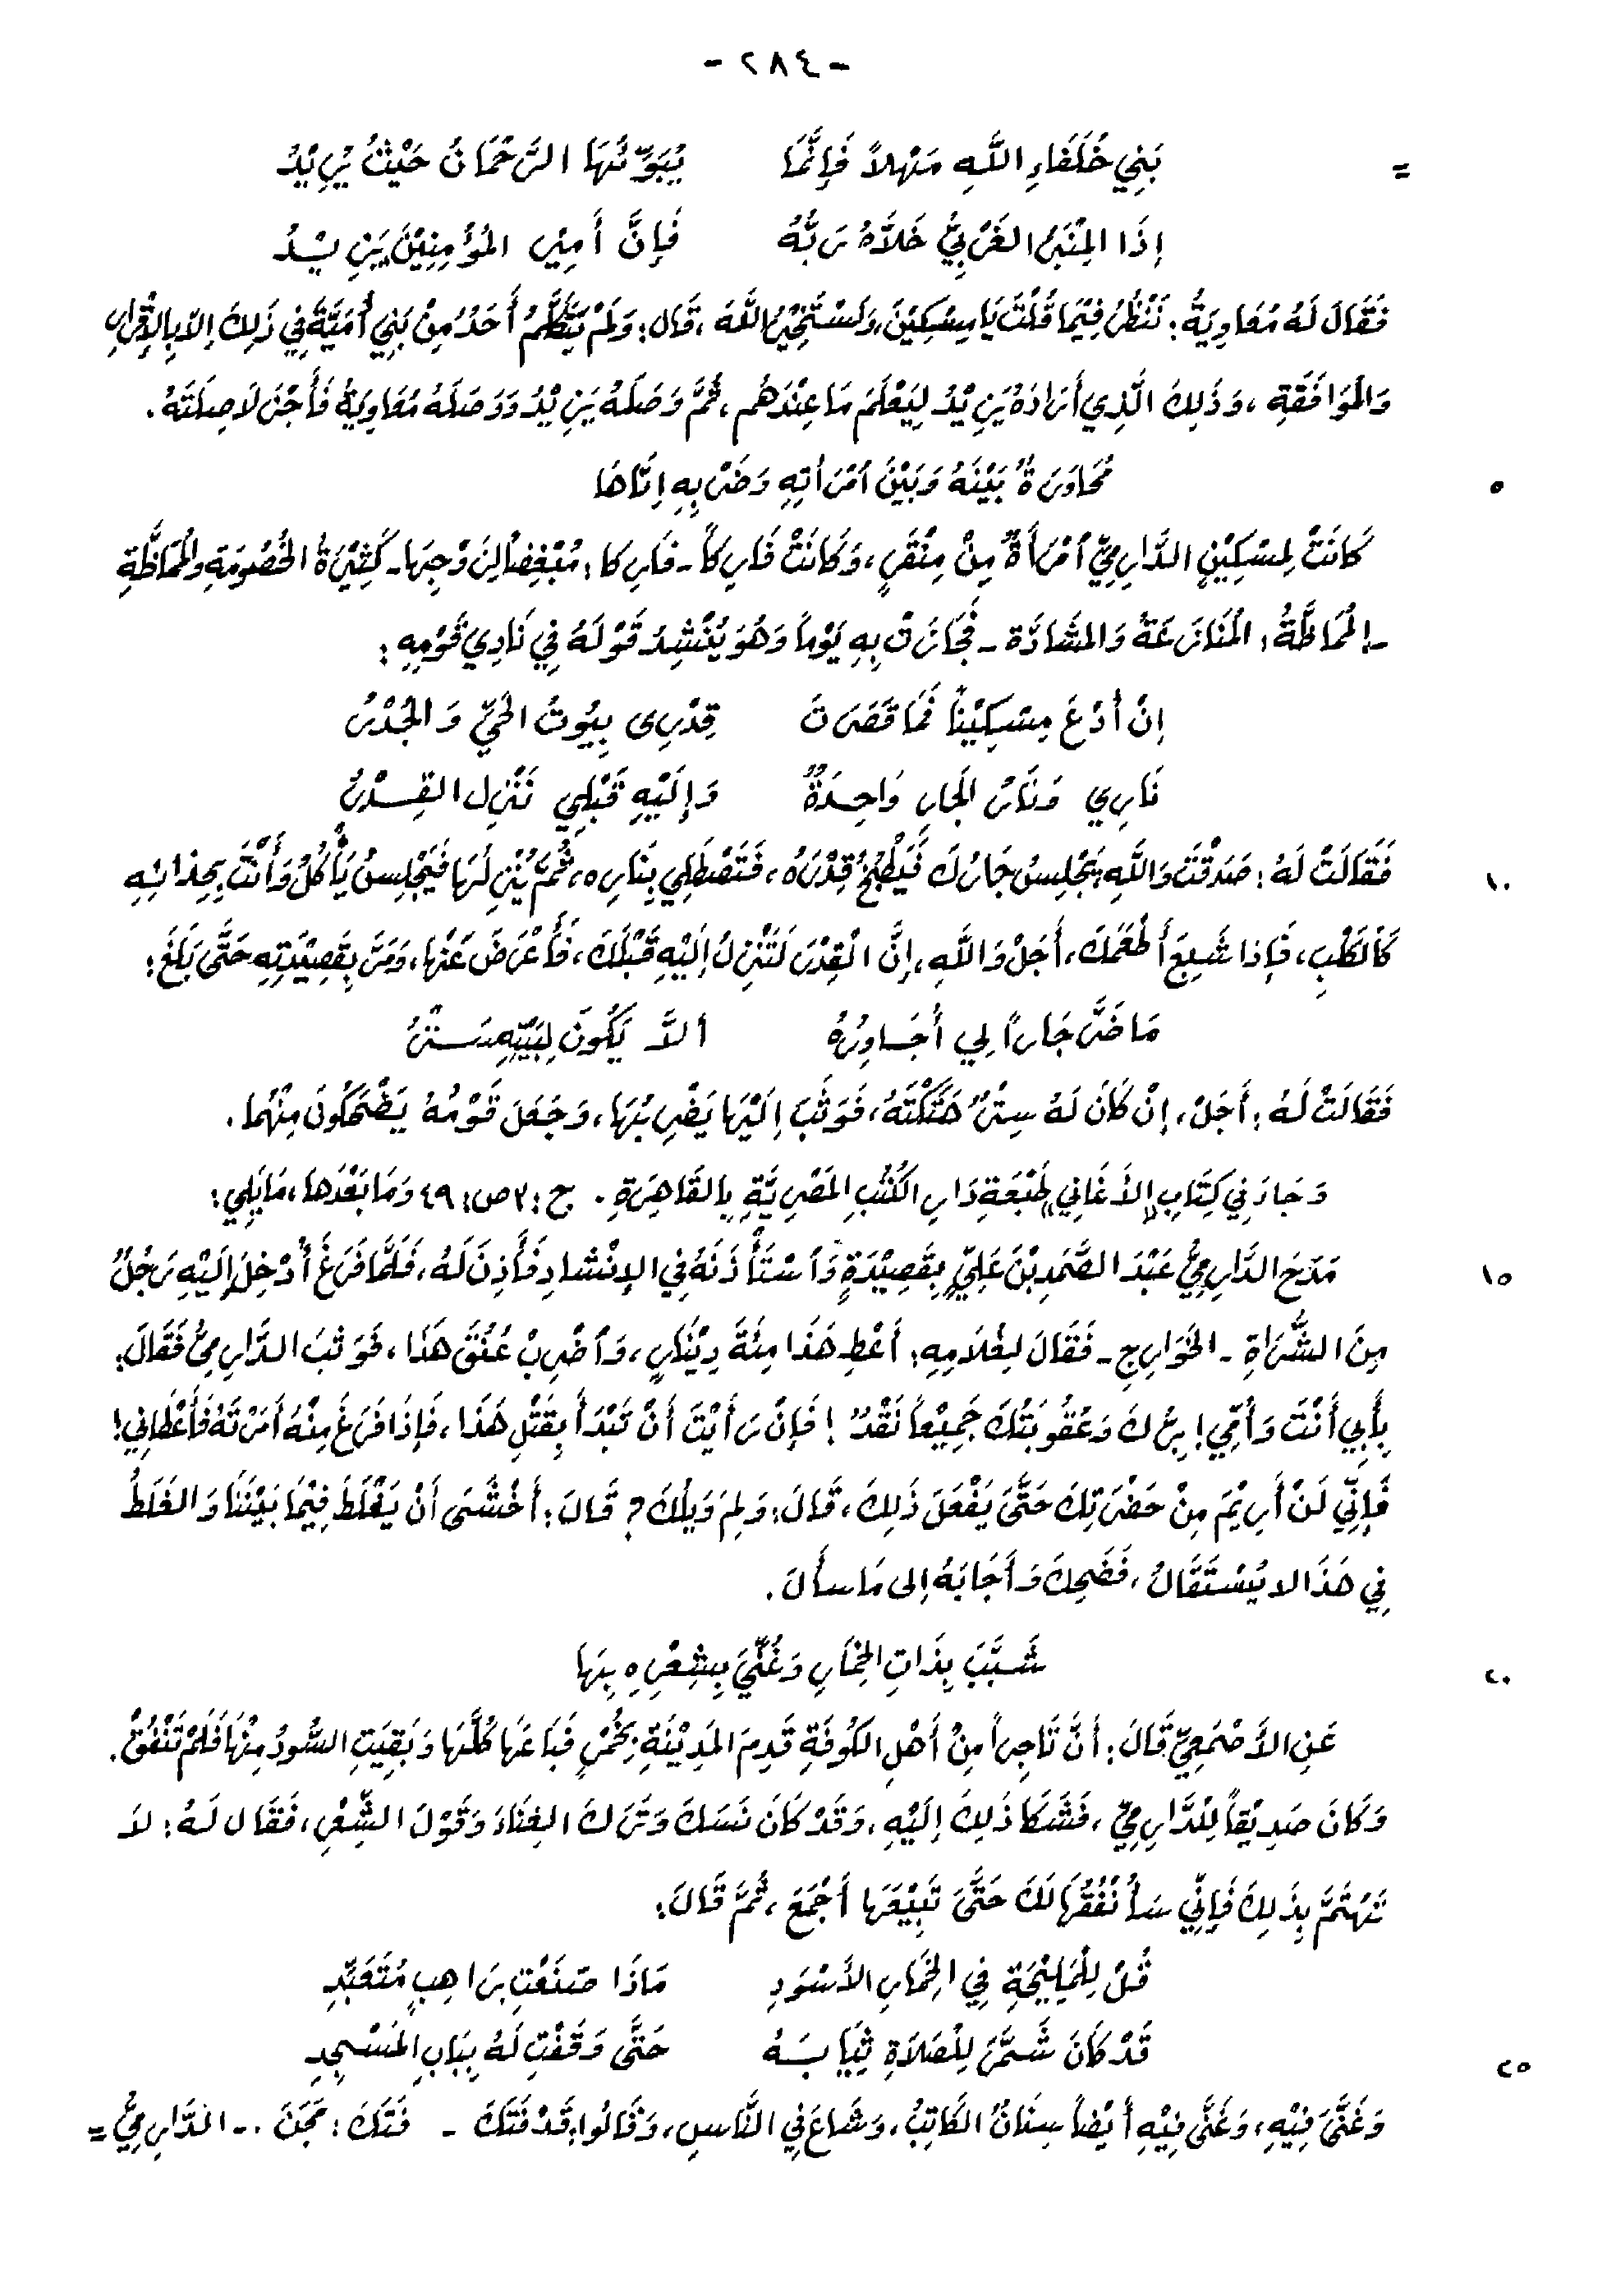 - ٢٨٤ -
= بَنِي خُلَفَاءِ اللَّهِ مَهْلاً فَإِنَّمَا يُبَوِّئُهَا الرَّحْمَانُ حَيْثُ يُرِيْدُ
إِذَا المِنْبَرُ الغَرْبِيُّ خَلاَّهُ رَبُّهُ فَإِنَّ أَمِيْرَ المُؤْمِنِيْنَ يَزِيْدُ
فَقَالَ لَهُ مُعَاوِيَةُ: نَنْظُرُ فِيْمَا قُلْتَ يَا مِسْكِيْنَ، وَنَسْتَخِيْرُ اللَّهَ، قَالَ: وَلَمْ يَتَكَلَّمْ أَحَدٌ مِنْ بَنِي أُمَيَّةَ فِي ذَلِكَ إِلاّ بِالإِقْرَارِ
وَالمُوَافَقَةِ، وَذَلِكَ الَّذِي أَرَادَهُ يَزِيْدُ لِيَعْلَمَ مَا عِنْدَهُم، ثُمَّ وَصَلَهُ يَزِيْدُ وَوَصَلَهُ مُعَاوِيَةُ فَأَجْزَلاَ صِلَتَهُ.
٥ مُحَاوَرَةٌ بَيْنَهُ وَبَيْنَ امْرَأتِهِ وَضَرْبِهِ إِيَّاهَا
كَانَتْ لِمِسْكِيْنٍ الدَّارِمِيِّ امْرَأَةٌ مِنْ مِنْقَرٍ، وَكَانَتْ فَارِكاً - فَارِكا: مُبْغِضاً لِزَوْجِهَا - كَثِيْرَةُ الخُصُومَةِ وَالمُمَاظَّةِ
- المُمَاظَّةُ: المُنَازَعَةُ وَالمشَادَّة - فَجَازَتْ بِهِ يَوْماً وَهُوَ يُنْشِدُ قَوْلَهُ فِي نَادِي قَوْمِهِ:
إِنْ أُدْعَ مِسْكِيْناً فَمَا قَصَرَتْ قِدْرِى بِيُوتُ الحَيِّ وَالجُدْرُ
نَارِي وَنَارُ الجَارِ وَاحِدَةٌ وَإِلَيْهِ قَبْلِي تَنْزِلُ القِدْرُ
١٠ فَقَالَتْ لَهُ: صَدَقْتَ وَاللَّهِ يَجْلِسُ جَارُكَ فَيَطْبُخُ قِدْرَهُ، فَتَصْطَلِي بِنَارِهِ، ثُمَّ يُنْزِلُهَا فَيَجْلِسُ يَأْكُلُ وَأَنْتَ بِحِذَائِهِ
كَالكَلْبِ، فَإِذا شَبِعَ أَطْعَمَكَ، أَجَلْ وَاللَّهِ، إِنَّ القِدْرَ لَتَنْزِلُ إِلَيْهِ قَبْلَكَ، فَأَعْرَضَ عَنْهَا، وَمَرَّ بِقَصِيْدَتِهِ حَتَّى بَلَغَ:
مَا ضَرَّ جَاراً لِي أُجَاوِرُهُ ألاَّ يَكُونَ لِبَيْتِهِ سِتْرُ
فَقَالَتْ لَهُ: أَجَلْ، إِنْ كَانَ لَهُ سِتْرٌ هَتَكْتَهُ، فَوَثَبَ إِلَيْهَا يَضْرِبُهَا، وَجَعَلَ قَوْمُهُ يَضْحَكُونَ مِنْهُمَا.
وَجَاءَ فِي كِتَابِ الأَغَانِي طَبْعَةِ دَارِ الكُتُبِ المِصْرِيَّةِ بِالقَاهِرَةِ. ج: ٣ ص: ٤٩ وَمَا بَعْدَهَا، مَا يَلِي:
١٥ مَدَحَ الدَّارِمِيُّ عَبْدَ الصَّمَدِ بْنَ عَلِيٍّ بِقَصِيْدَةٍ وَاسْتَأْذَنَهُ فِي الإِنْشَادِ فَأَذِنَ لَهُ، فَلَمَّا فَرَغَ أُدْخِلَ إِلَيْهِ رَجُلٌ
مِنَ الشُّرَاةِ - الخَوَارِجِ - فَقَالَ لِغُلاَمِهِ: أَعْطِ هَذَا مِئَةَ دِيْنَارٍ، وَاضْرِبْ عُنُقَ هَذَا، فَوَثَبَ الدَّارِمِيُّ فَقَالَ:
بِأَبِي أَنْتَ وَأُمِّي! بِرُّكَ وَعُقُوبَتُكَ جَمِيْعاً نَقْدٌ! فَإِنْ رَأَيْتَ أَنْ تَبْدَأَ بِقَتْلِ هَذَا، فَإِذَا فَرَغَ مِنْهُ أَمَرْتَهُ فَأَعْطَانِي!
فَإِنِّي لَنْ أَرِيْمَ مِنْ حَضْرَتِكَ حَتَّى يَفْعَلَ ذَلِكَ، قَالَ: وَلِمَ وَيْلَكَ؟ قَالَ: أَخْشَى أَنْ يَغْلَطَ فِيْمَا بَيْنَنَا وَالغَلَطُ
فِي هَذَا لا يُسْتَقَالُ، فَضَحِكَ وَأَجَابَهُ إلى مَا سأَلَ.
٢٠ شَبَّبَ بِذَاتِ الخِمَارِ وَغُنِّيَ بِشِعْرِهِ بِهَا
عَنِ الأَصْمَعِيِّ قَالَ: أَنَّ تَاجِراً مِنْ أَهْلِ الكُوفَةِ قَدِمَ المَدِيْنَةِ بِخُمُرٍ فَبَاعَهَا كُلَّهَا وَبَقِيَتِ السُّودُ مِنْهَا فَلَمْ تَنْفُقْ.
وَكَانَ صَدِيْقاً لِلدَّارِمِيِّ، فَشَكَا ذَلِكَ إِلَيْهِ، وَقَدْ كَانَ نَسَكَ وَتَرَكَ الغِنَاءَ وَقَوْلَ الشِّعْرِ، فَقَالَ لَهُ: لاَ
تَهْتَمَّ بِذَلِكَ فَإِنِّي سَأُنْفِقُهَا لَكَ حَتَّى تَبِيْعَهَا أَجْمَعَ، ثُمَّ قَالَ:
قُلْ لِلْمَلِيْحَةِ فِي الخِمَارِ الأَسْوَدِ مَاذَا صَنَعْتِ بِرَاهِبٍ مُتَعَبِّدِ
٢٥ قَدْ كَانَ شَمَّرَ لِلْصَلاَةِ ثِيَابَهُ حَتَّى وَقَفْتِ لَهُ بِبَابِ المَسْجِدِ
وَغَنَّى فِيْهِ، وَغَنَّى فِيْهِ أَيْضاً سِنَانُ الكَاتِبُ، وَشَاعَ فِي النَّاسِ، وَقَالُوا: قَدْ فَتَكَ - فَتَكَ: مَجَنَ .- الدَّارِمِيُّ =